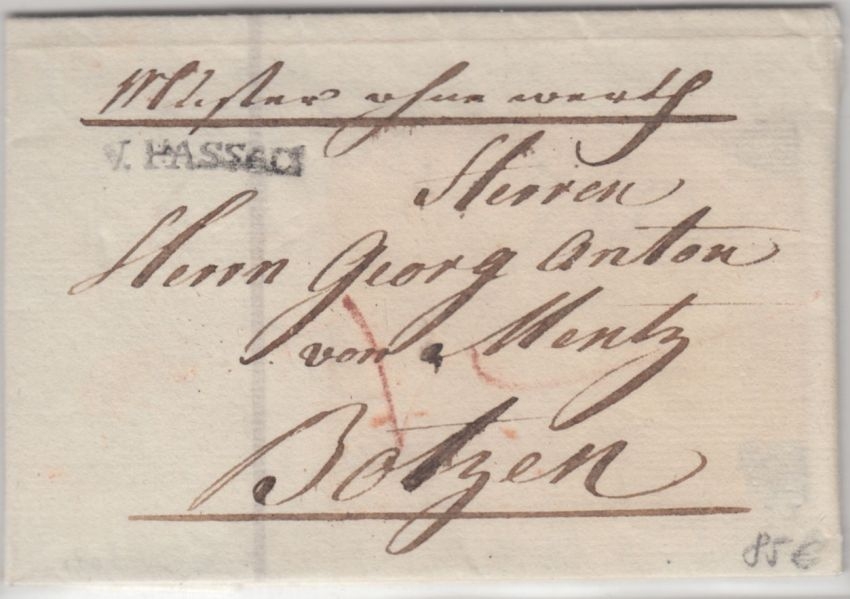 Muster ohne werth
V. PASSAU
Herren
Herrn Georg Anton
von Mentz
Botzen
85 €